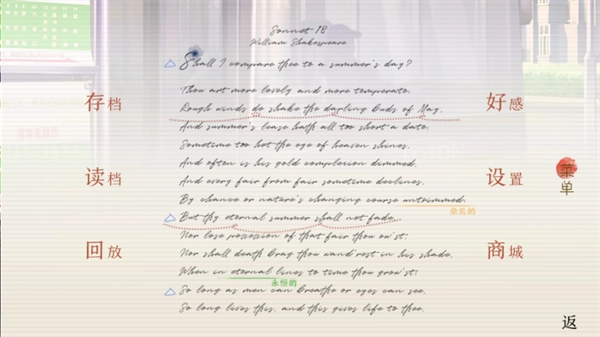 Sonnet 18
William Shakespeare
Shall I compare thee to a summer's day?
Thou art more lovely and more temperate.
Rough winds do shake the darling buds of May,
And summer's lease hath all too short a date.
Sometime too hot the eye of heaven shines,
And often is his gold complexion dimmed,
And every fair from fair sometime declines,
By chance or nature's changing course untrimmed.
杂乱的
But thy eternal summer shall not fade,
Nor lose possession of that fair thou ow'st:
Nor shall death brag thou wand'rest in his shade,
When in eternal lines to time thou grow'st:
永恒的
So long as men can breathe or eyes can see,
So long lives this, and this gives life to thee.
存档
读档
回放
好感
设置
商城
菜单
返